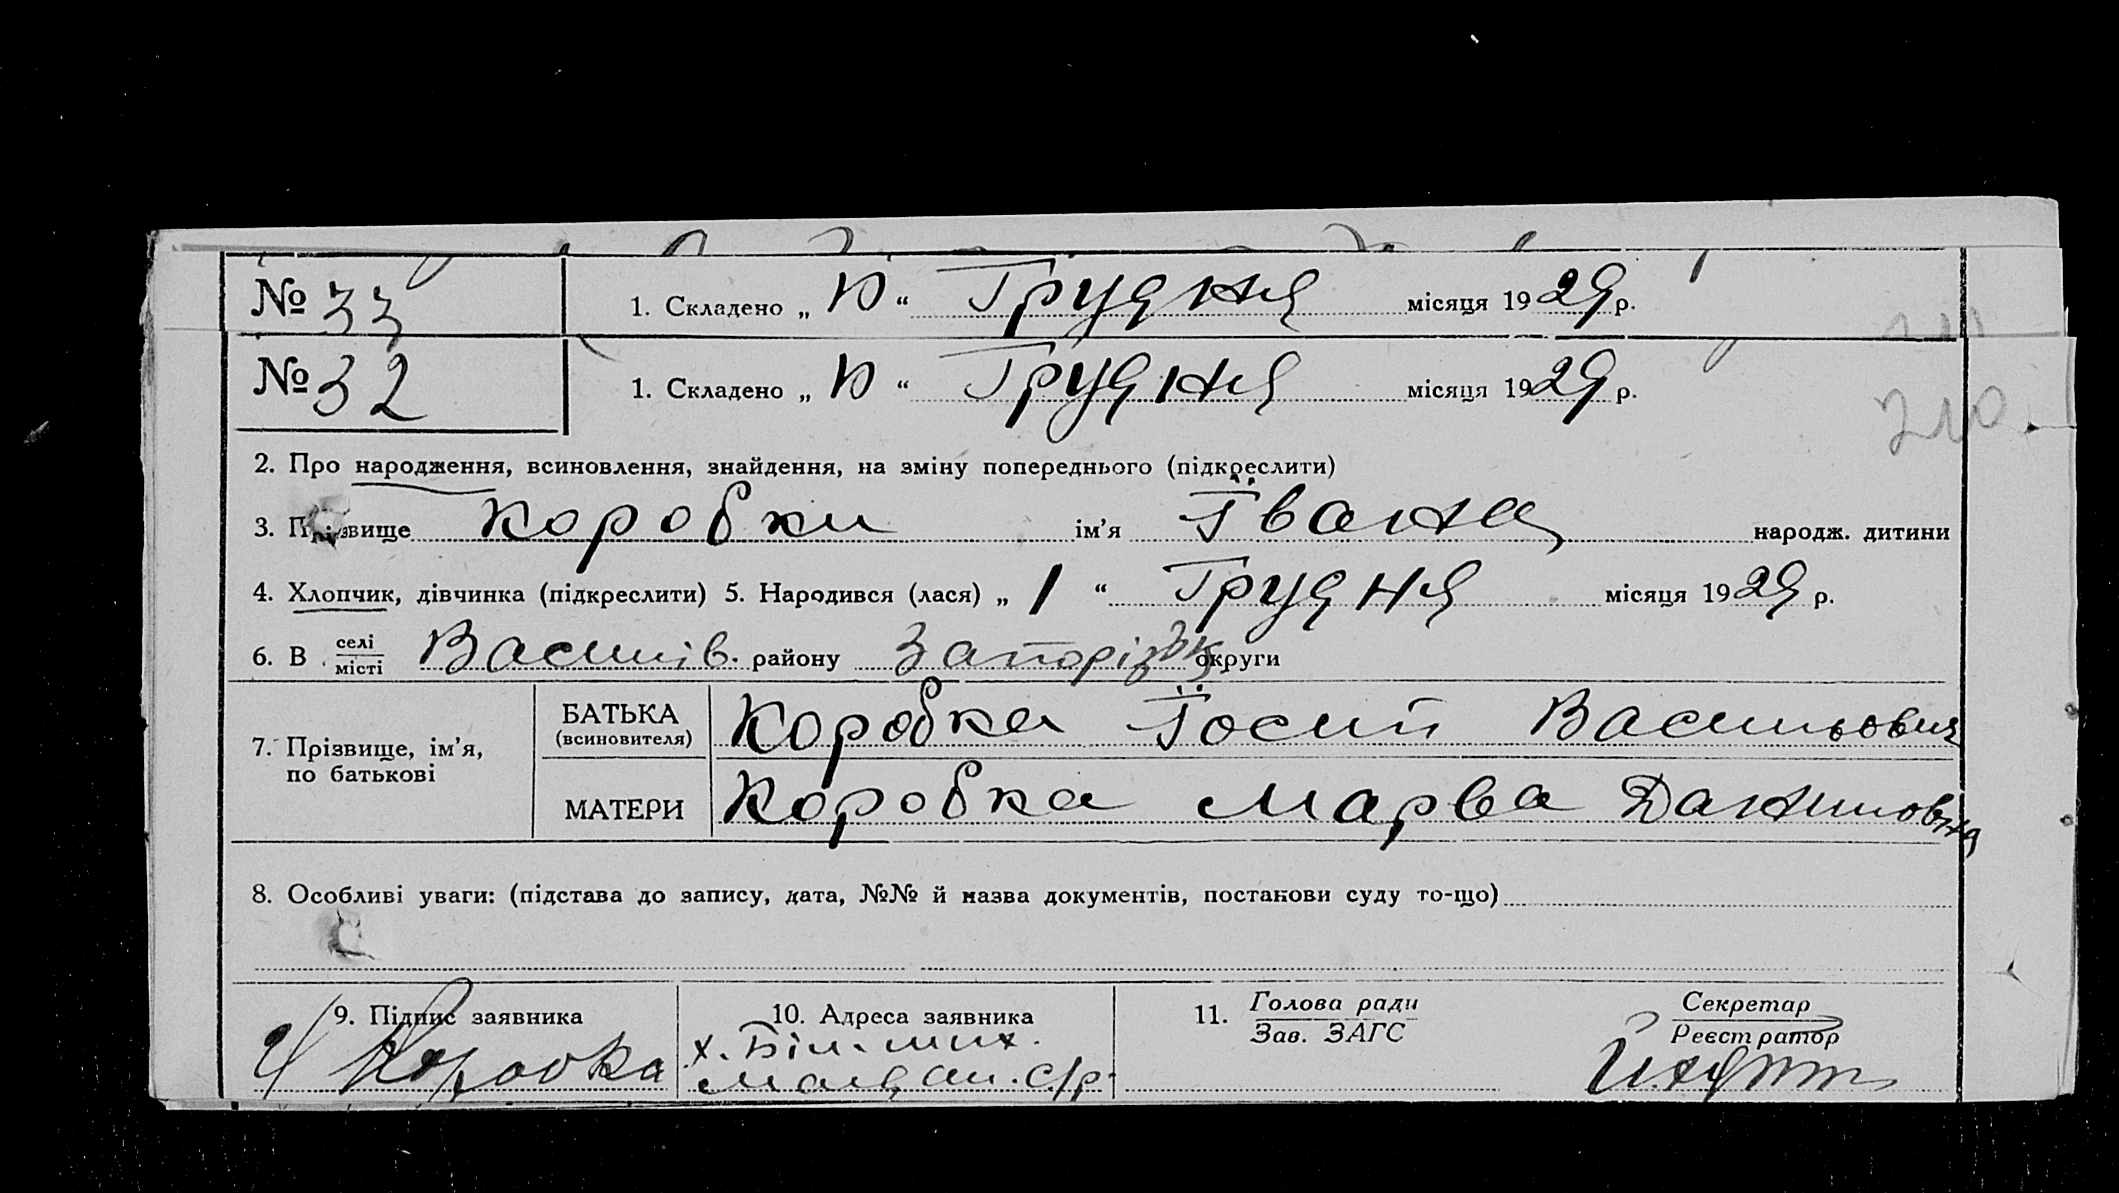 № 33 1. Складено „ 10 “ Грудня місяця 1929 р.
№ 32 1. Складено „ 10 “ Грудня місяця 1929 р.
210.
2. Про народження, всиновлення, знайдення, на зміну попереднього (підкреслити)
3. Прізвище Коробки ім’я Івана народж. дитини
4. Хлопчик, дівчинка (підкреслити) 5. Народився (лася) „ 1 “ Грудня місяця 1929 р.
6. В селі місті Василів. району Запорізьк округи
7. Прізвище, ім’я, по батькові
БАТЬКА (всиновителя) Коробка Йосип Васильович
МАТЕРИ Коробка Марва Даниловна
8. Особливі уваги: (підстава до запису, дата, №№ й назва документів, постанови суду то-що)
9. Підпис заявника 10. Адреса заявника 11. Голова ради Зав. ЗАГС Секретар Реєстратор
Коробка х.
с/р.